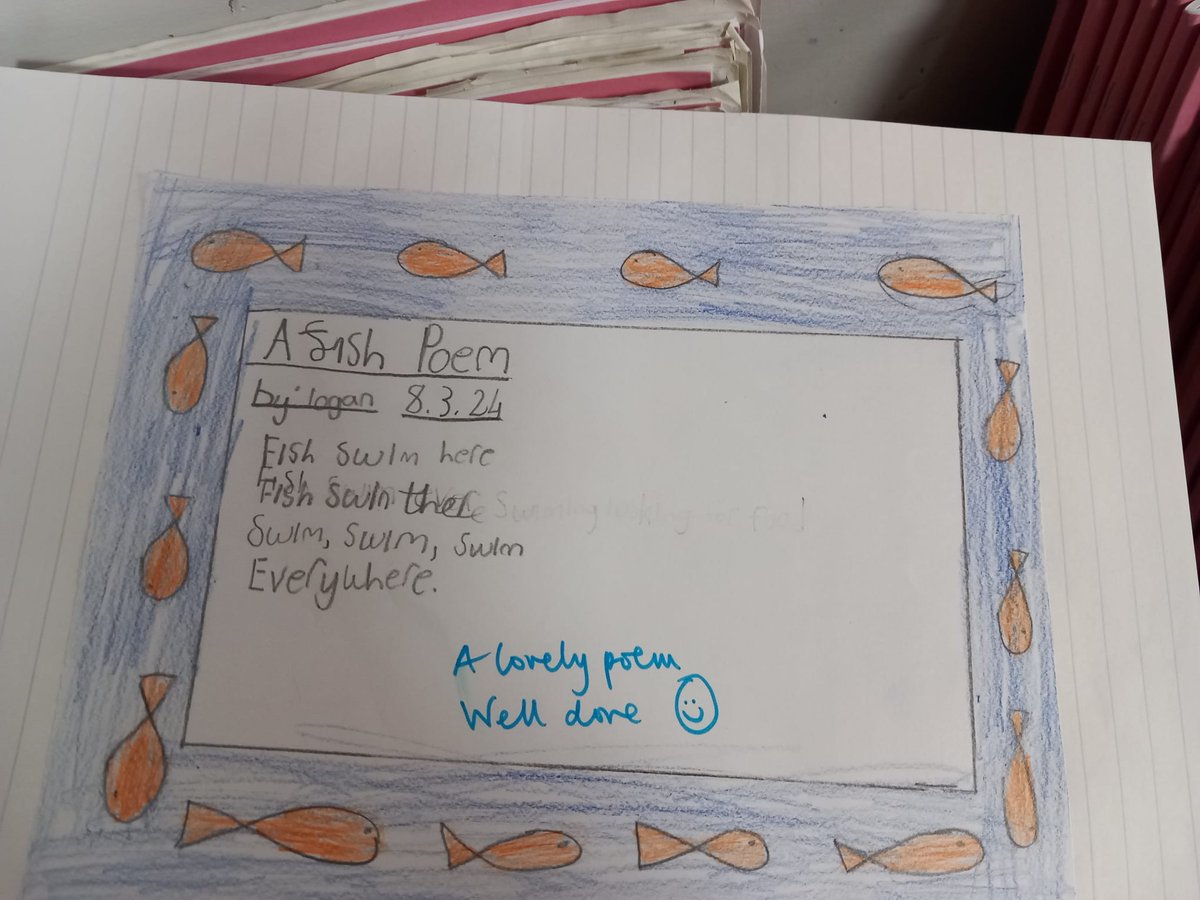 A fish Poem
by logan 8.3.24
Fish swim here
Fish swim there
Swim, Swim, swim
Everywhere.
A lovely poem
Well done